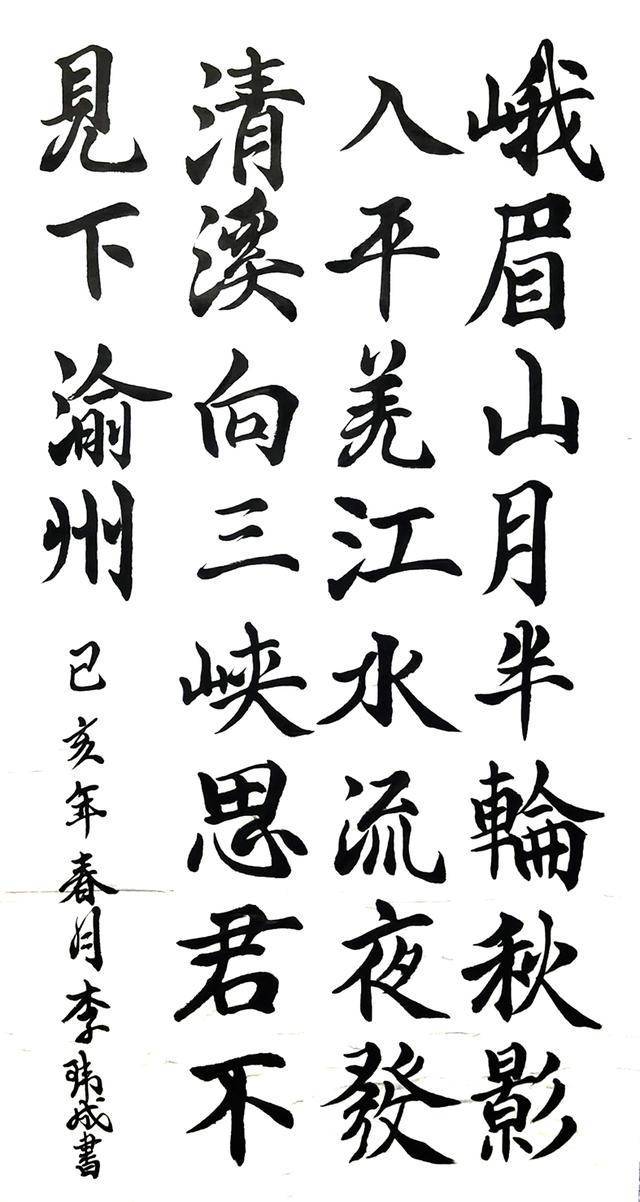 峨眉山月半輪秋影
入平羌江水流夜發
清溪向三峽思君不
見下渝州
已亥年春月李瑋成書